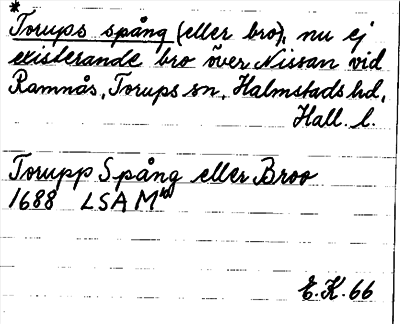 *
Torups spång (eller bro), nu ej
existerande bro över Nissan vid
Ramnås, Torups sn, Halmstads hd,
Hall. l.
Torupp Spång eller Broo
1688 LSA M¹⁰
E.K. 66